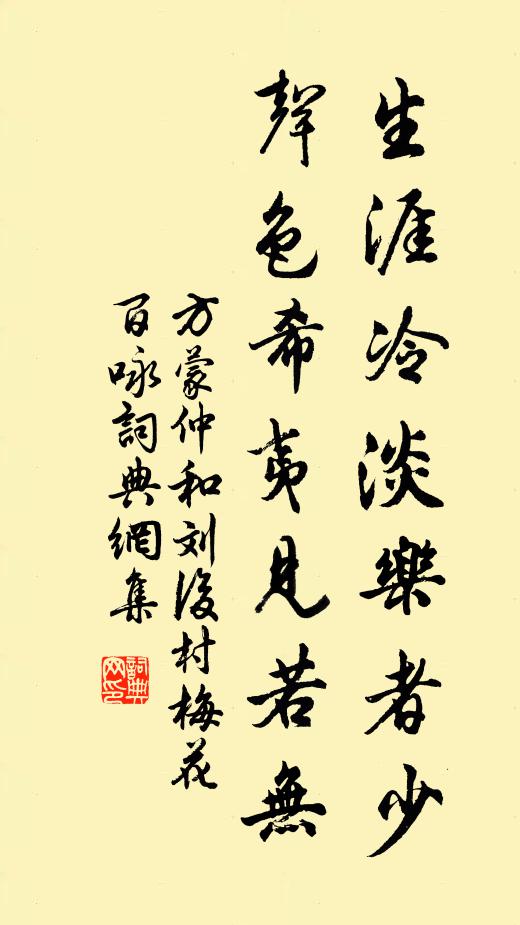 生涯冷淡樂者少
聲色希夷見若無
方蒙仲和刘後村梅花
百咏詞典網集
詞典网印